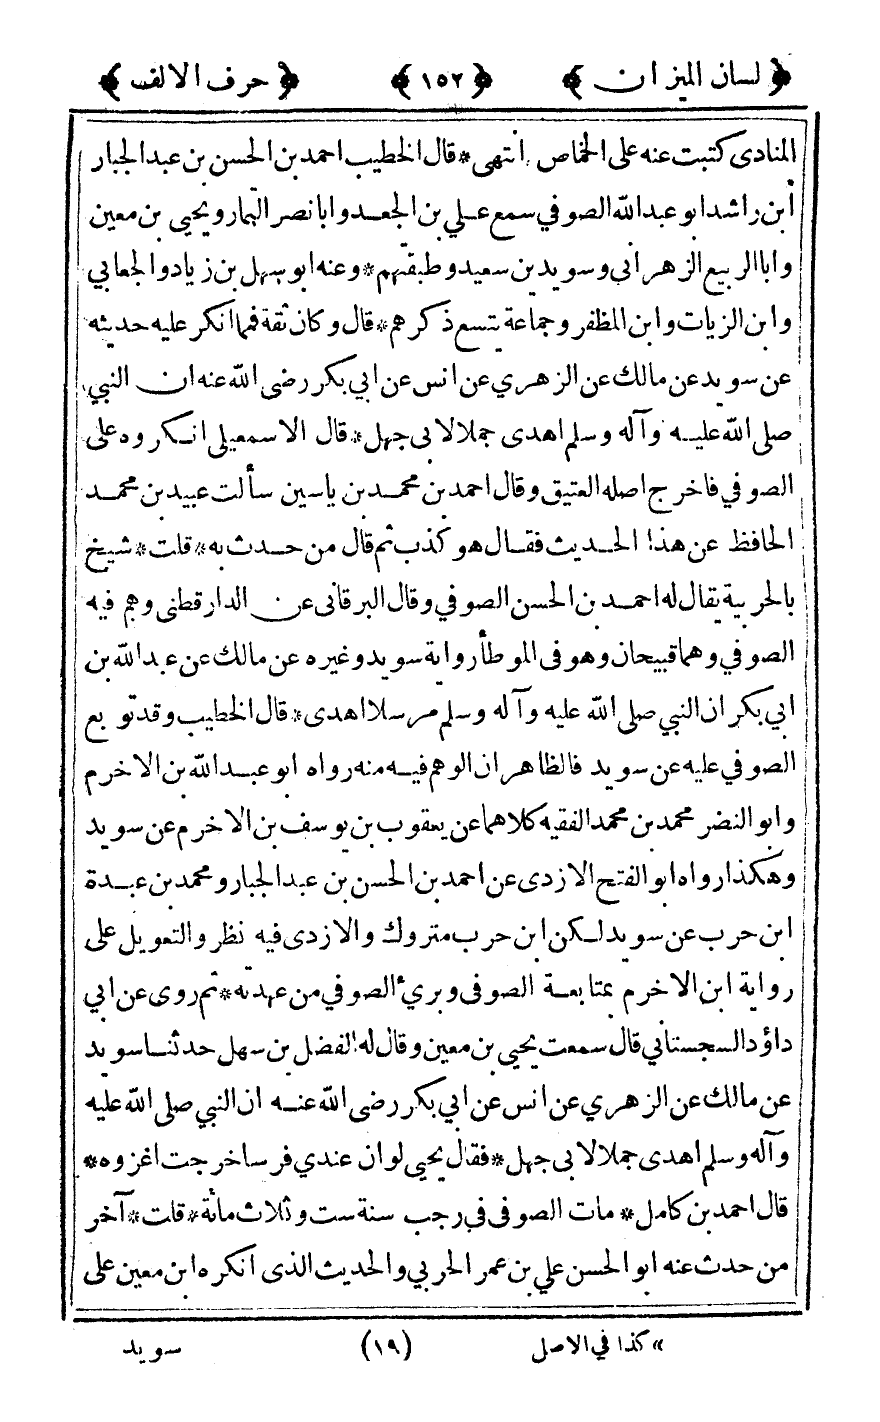 ﴿ لسان الميزان ﴾ ﴿ ١٥٢ ﴾ ﴿ حرف الالف ﴾
المنادى كتبت عنه على الخماص انتهى * قال الخطيب احمد بن الحسن بن عبد الجبار
ابن راشد ابو عبد الله الصوفي سمع علي بن الجعد وابا نصر التمار ويحيى بن معين
وابا الربيع الزهرانى وسويد بن سعيد وطبقتهم * وعنه ابو سهل بن زياد والجعابي
وابن الزيات وابن المظفر وجماعة يتسع ذكرهم * قال وكان ثقة فما انكر عليه حديثه
عن سويد عن مالك عن الزهري عن انس عن ابي بكر رضى الله عنه ان النبي
صلى الله عليه وآله وسلم اهدى جملا لابى جهل * قال الاسمعيلى انكروه على
الصوفي فاخرج اصله العتيق وقال احمد بن محمد بن ياسين سألت عبيد بن محمد
الحافظ عن هذا الحديث فقال هو كذب ثم قال من حدث به * قلت * شيخ
بالحربية يقال له احمد بن الحسن الصوفي وقال البرقانى عن الدارقطنى وهم فيه
الصوفي وهما قبيحان وهو فى الموطأ رواية سويد وغيره عن مالك عن عبد الله بن
ابي بكر ان النبي صلى الله عليه وآله وسلم مرسلا اهدى * قال الخطيب وقد توبع
الصوفي عليه عن سويد فالظاهر ان الوهم فيه منه رواه ابو عبد الله بن الاخرم
وابو النضر محمد بن محمد الفقيه كلاهما عن يعقوب بن يوسف بن الاخرم عن سويد
وهكذا رواه ابو الفتح الازدى عن احمد بن الحسن بن عبد الجبار ومحمد بن عبدة
ابن حرب عن سويد لكن ابن حرب متروك والازدى فيه نظر والتعويل على
رواية ابن الاخرم بمتابعة الصوفى وبريء الصوفي من عهدته * ثم روى عن ابي
داؤد السجستاني قال سمعت يحيى بن معين وقال له الفضل بن سهل حدثنا سويد
عن مالك عن الزهري عن انس عن ابي بكر رضى الله عنه ان النبي صلى الله عليه
وآله وسلم اهدى جملا لابى جهل * فقال يحيى لو ان عندي فرسا خرجت اغزوه *
قال احمد بن كامل * مات الصوفى في رجب سنة ست وثلاث مائة * قلت * آخر
من حدث عنه ابو الحسن علي بن عمر الحربي والحديث الذى انكره ابن معين على
» كذا في الاصل (١٩) سويد